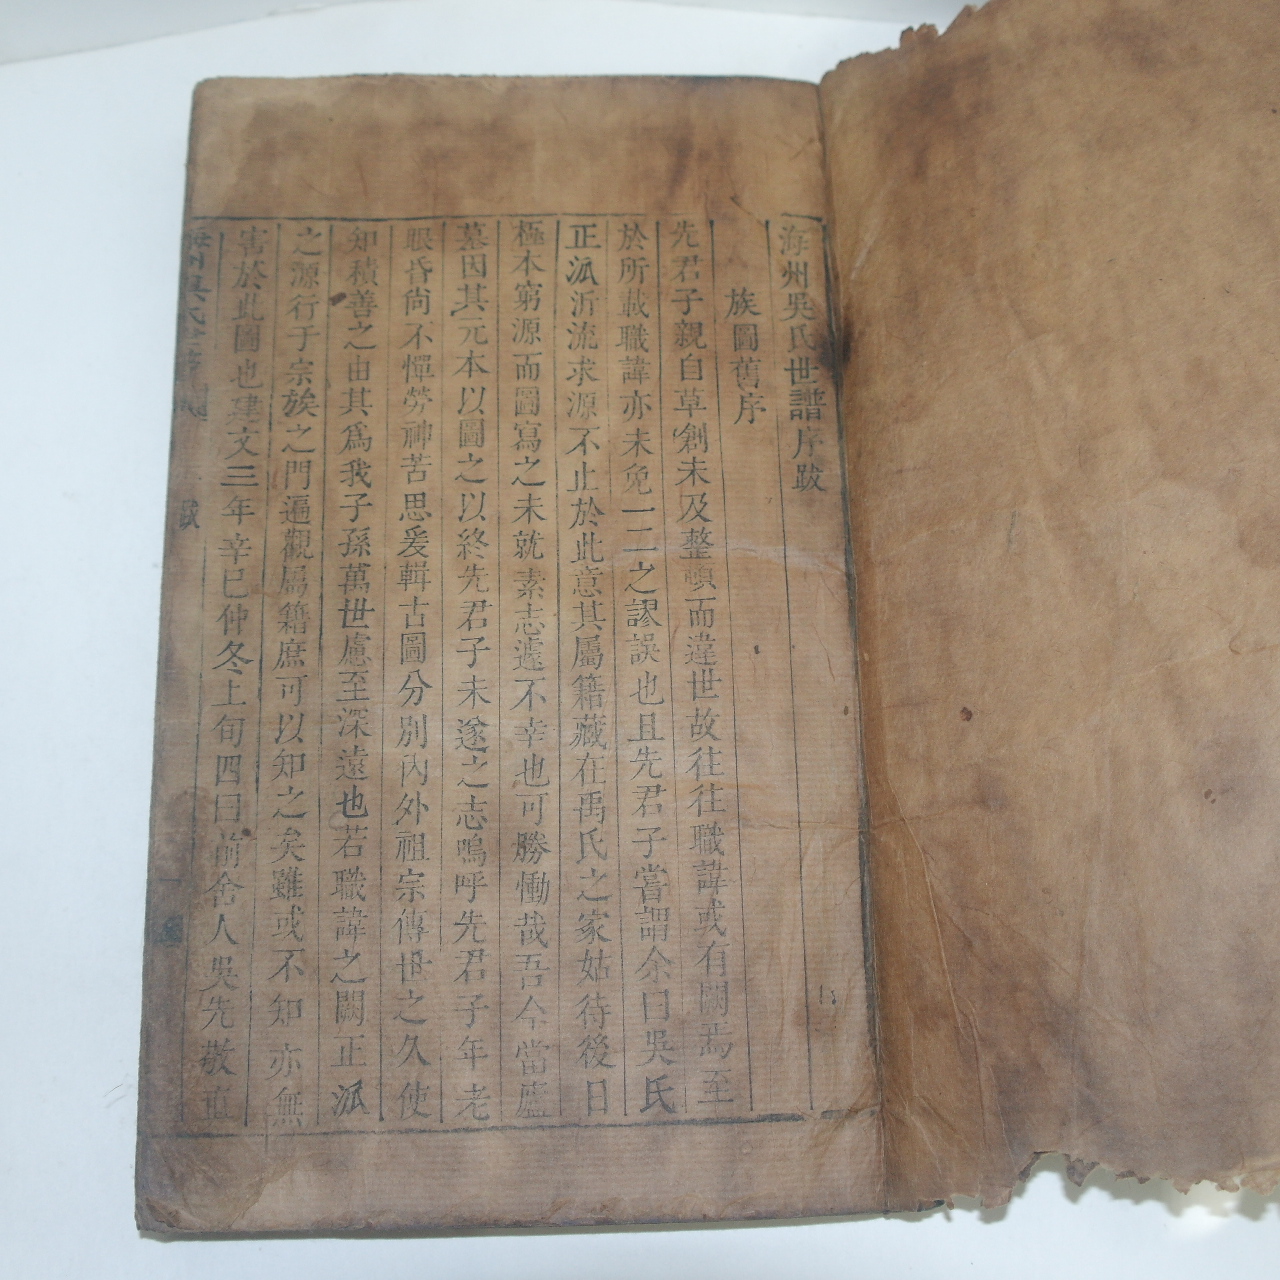 海州吳氏世譜序跋
族圖舊序
先君子親自草創未及整頓而違世故往往職諱或有闕焉至
於所載職諱亦未免一二之謬誤也且先君子嘗謂余曰吳氏
正派沂流求源不止於此意其屬籍藏在禹氏之家姑待後日
極本窮源而圖寫之未就素志遽不幸也可勝慟哉吾今當廬
墓因其元本以圖之以終先君子未遂之志嗚呼先君子年老
眼昏尙不憚勞神苦思爰輯古圖分別內外祖宗傳世之久使
知積善之由其爲我子孫萬世慮至深遠也若職諱之闕正派
之源行于宗族之門遍觀屬籍庶可以知之矣雖或不知亦無
害於此圖也建文三年辛巳仲冬上旬四日前舍人吳先敬直
海州吳氏世譜